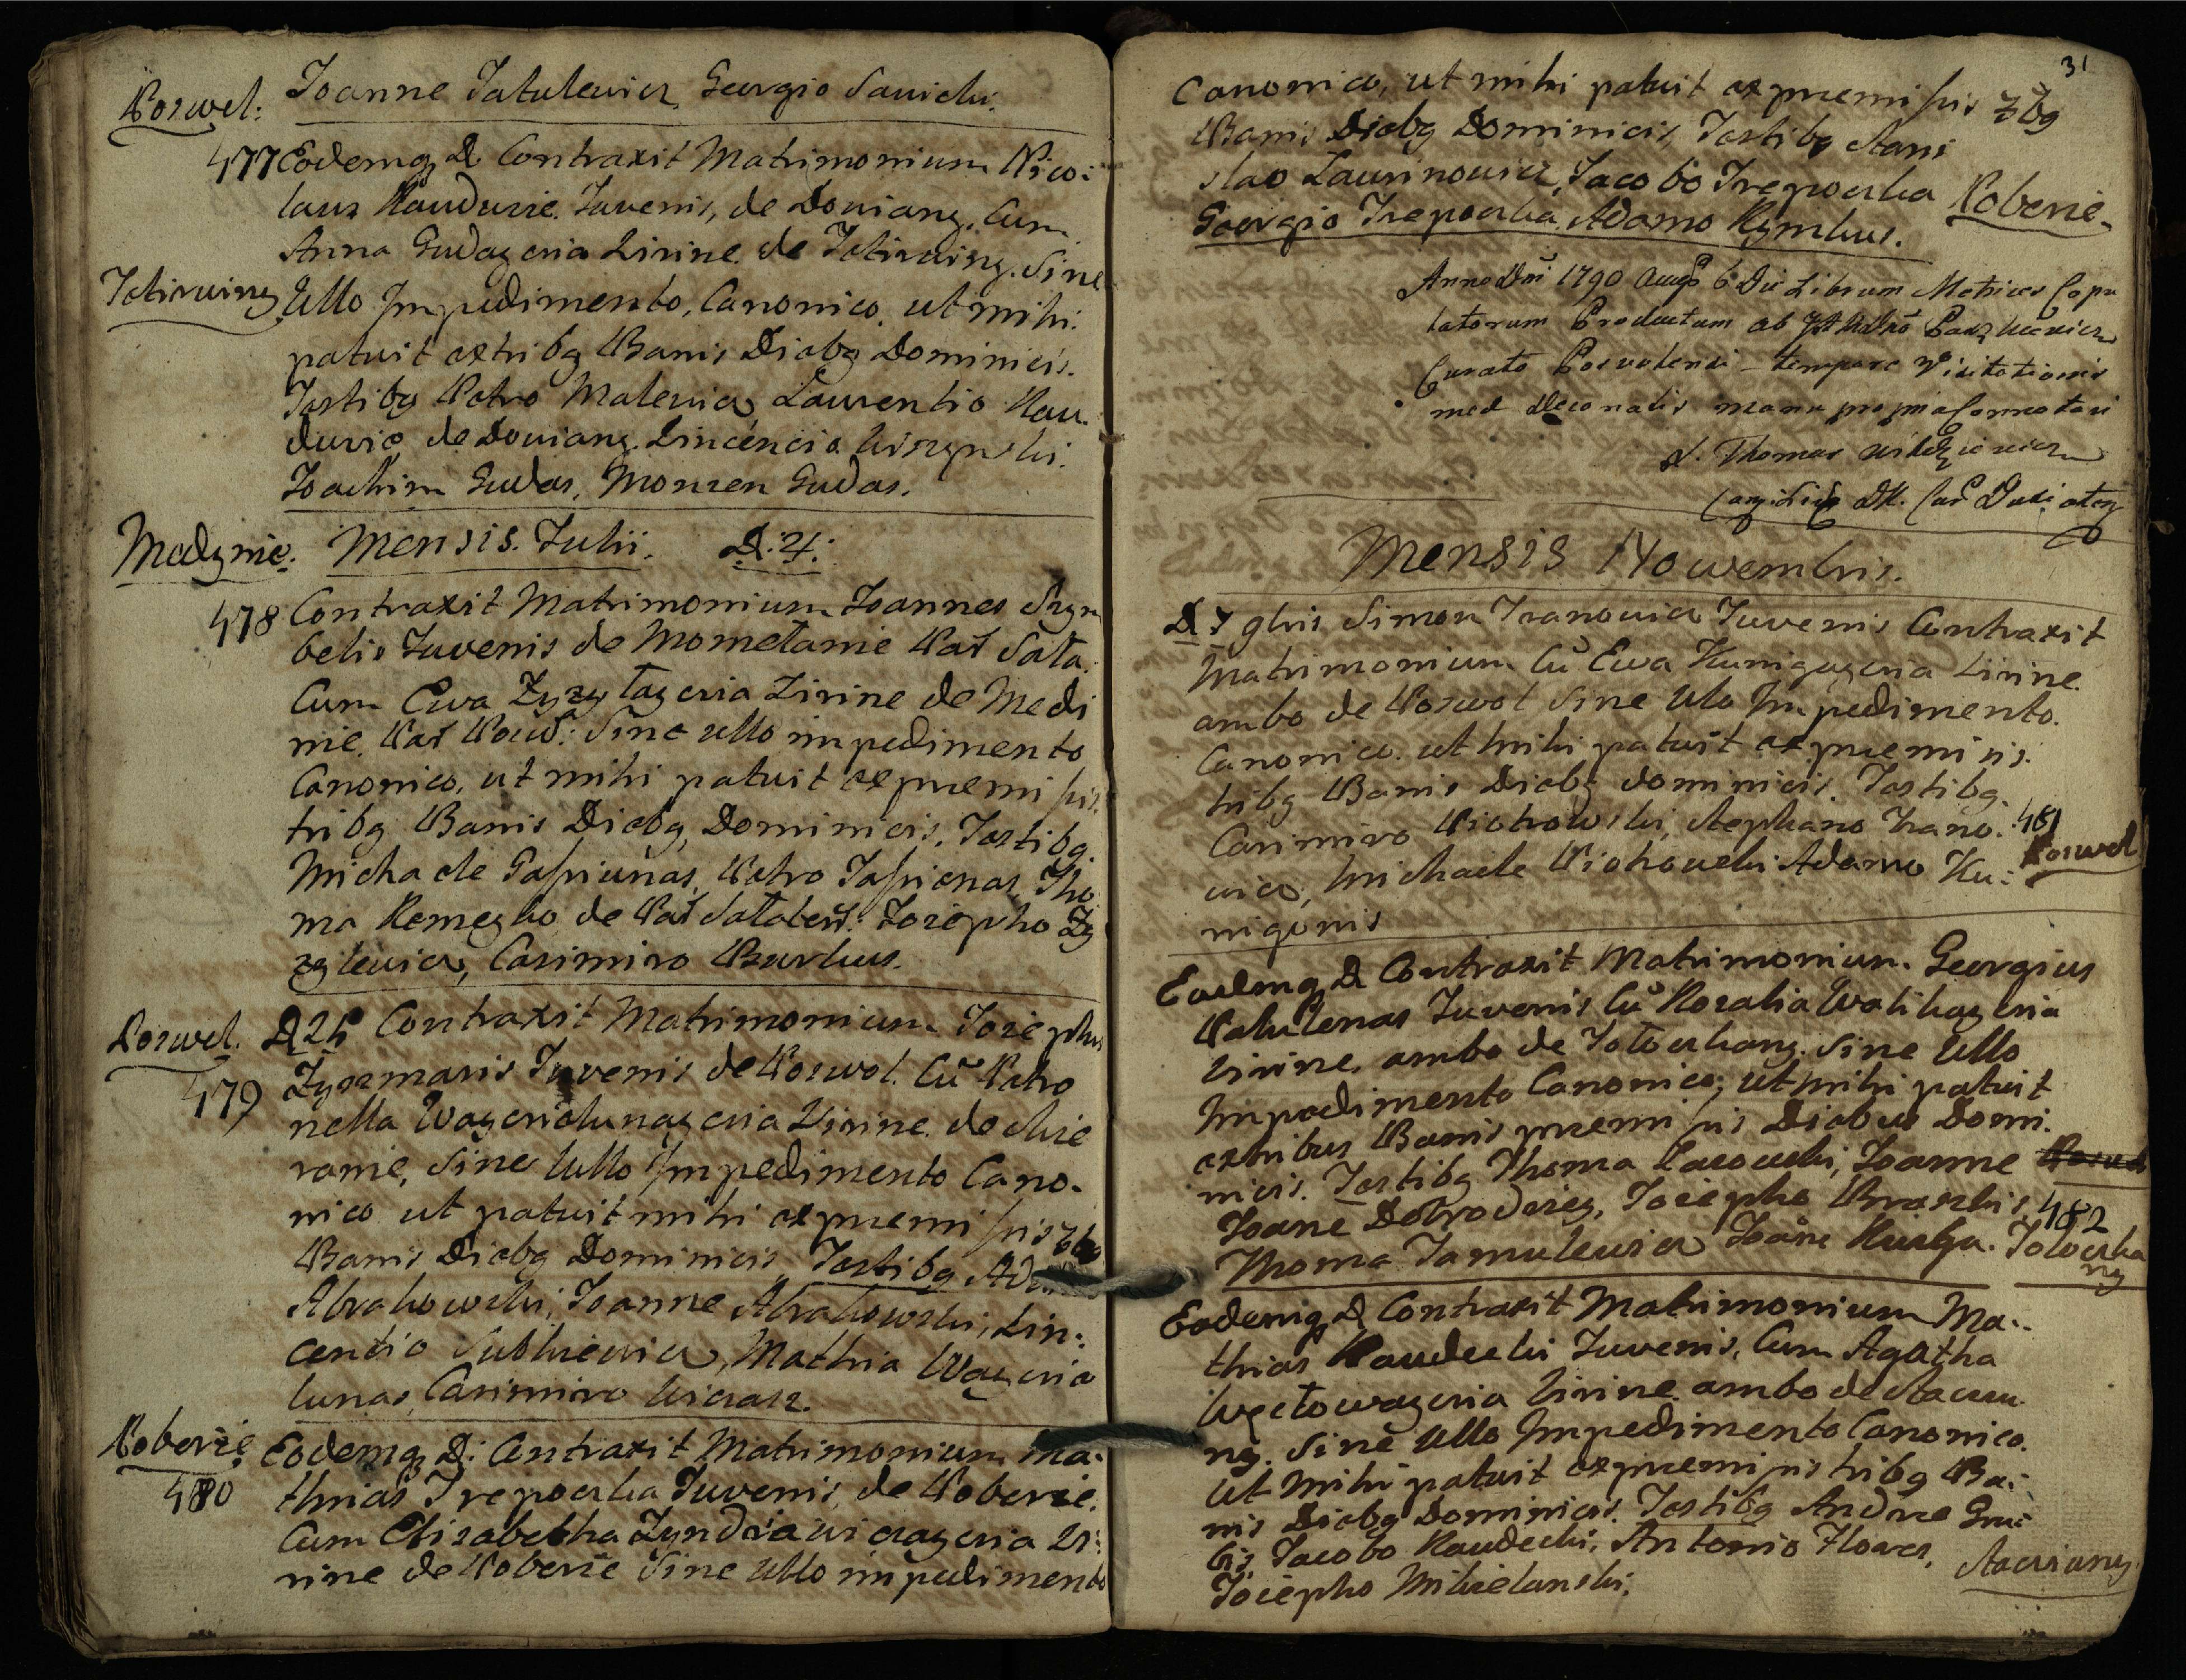 Joanne Tatulewicz Georgio Savicki.
Poswol:
477 Eodemq D. Contraxit Matrimonium Nico:
laus Kauduzie Juvenis, de Doviany. Cum
Anna Gudayczia Virine de Totirviny. Sine
Totirviny
Ullo Impedimento, Canonico, ut mihi.
patuit ex tribq Banis Diebq Dominicis.
Testibq Petro Malewicz Laurentio Kau.
duzio de Doviany. Vincencio
Joachim Gudas, Monzen Gudas.
Medynie: Mensis. Julii. D: 4:
478 Contraxit Matrimonium Joannes Szym
belis Juvenis de Mometanie Par Sata.
Cum Ewa Zyzy layczia Virine de Medi
nie. Par Posw: Sine ullo impedimento
Canonico, ut mihi patuit ex premissis
tribq Banis Diebq Dominicis, Testibq
Michaele Gasiunas, Petro Jasienas, Tho
ma Remeyko de Par Satatens: Josepho Zy
zylewicz, Casimiro Burkus.
Poswol. D 25 Contraxit Matrimonium Josephus
479 Zyzmaris Juvenis de Poswol. Cu Petro
nella Wayczielunayczia Virine de
ranie, Sine Ullo Impedimento Cano.
nico ut patuit mihi ex premissis 3bq
Banis Diebq Dominicis Testibq
Abrakowski, Joanne Abrakowski, Vin:
centio Sutkiewicz, Mathia Wayczie
lunas, Casimiro
Poberże Eodemq D: Contraxit Matrimonium Ma:
480 thias Trepoczka Juvenis, de Poberże.
Cum Elisabetha Zyndzia wiczayczia Vi:
rine de Poberże Sine Ullo impedimento
31
Canonico, ut mihi patuit ex premissis 3bq
Banis Diebq Dominicis, Testibq Stani
slao Laurinowicz, Jacobo Trepoczka
Poberże
Georgio Trepoczka, Adamo Rymkus.
Anno Dni 1790 Augo 6 Die Librum Metrices Copu
latorum Productum ab
Curato Posvolensi tempore Visitationis
meæ Deconalis manu propria connotavi
Thomas
Mensis Nowembris.
D 7 9bris Simon Iwanowicz Juvenis Contraxit
Matrimonium Cu Ewa Kunigayczia Virine.
ambo de Poswol Sine Ulo Impedimento.
Canonico. ut mihi patuit ex premissis.
tribq Banis Diebq dominicis. Testibq.
Casimiro Piotrowski, Stephano Iwano. 481
wicz, Michaele Piotrowski Adamo Ku:
Poswol
nigonis
Eodemq D Contraxit Matrimonium Georgius
Patulenas Juvenis Cu Rosalia Watikayczia
Virine, ambo de Totoczkany. Sine Ullo
Impedimento Canonico, ut mihi patuit
ex tribus Banis premissis Diebus Domi.
nicis. Testibq Thoma Lasowski, Joanne
Joane Dobrodziey, Josepho Brazkis, 482
Thoma Jamulewicz Joane Kuszka. Totoczka
ny
Eodemq D Contraxit Matrimonium Ma:
thias Raudecki Juvenis, Cum Agatha
Swetowayczia Virine ambo de Stacziu
ny. Sine Ullo Impedimento Canonico.
Ut Mihi patuit ex premissis tribq Ba:
nis Diebq Dominicis. Testibq Andrea Gru:
bis, Jacobo Raudecki, Antonio
Stacziuny.
Josepho Mikielunski.